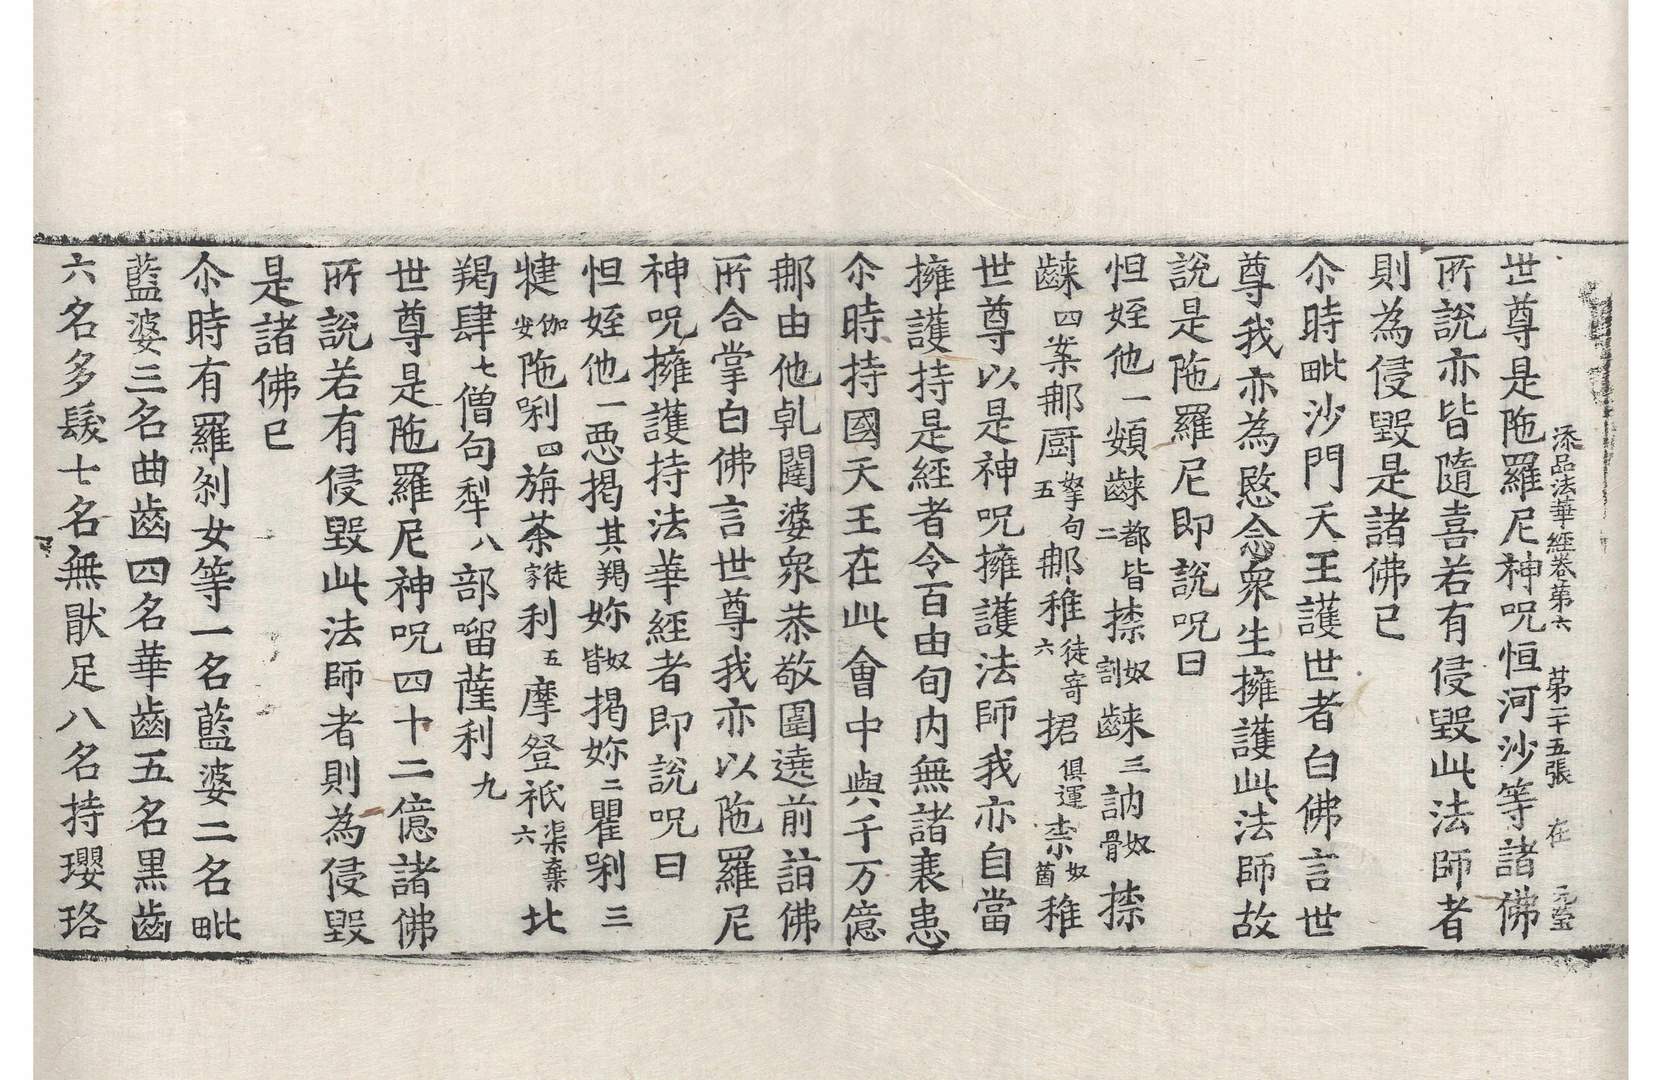 添品法華經卷第六　第二十五張　在　元瑩
世尊是陁羅尼神呪恒河沙等諸佛
所說亦皆隨喜若有侵毀此法師者
則為侵毀是諸佛已
尒時毗沙門天王護世者白佛言世
尊我亦為愍念衆生擁護此法師故
說是陁羅尼即說呪曰
怛姪他一頞䶩都皆二㮈奴訓䶩三訥奴骨㮈
䶩四案那厨拏句五那稚徒寄六捃俱運㮈奴箇稚
世尊以是神呪擁護法師我亦自當
擁護持是經者令百由旬内無諸衰患
尒時持國天王在此會中與千万億
那由他乹闥婆衆恭敬圍遶前詣佛
所合掌白佛言世尊我亦以陁羅尼
神呪擁護持法華經者即說呪曰
怛姪他一悪揭其羯妳奴皆揭妳二瞿唎三
犍伽安陁唎四旃荼徒家利五摩登祇渠棄六北
羯肆七僧句犁八部嚁薩利九
世尊是陁羅尼神呪四十二億諸佛
所說若有侵毀此法師者則為侵毀
是諸佛已
尒時有羅剎女等一名藍婆二名毗
藍婆三名曲齒四名華齒五名黒齒
六名多髮七名無猒足八名持瓔珞